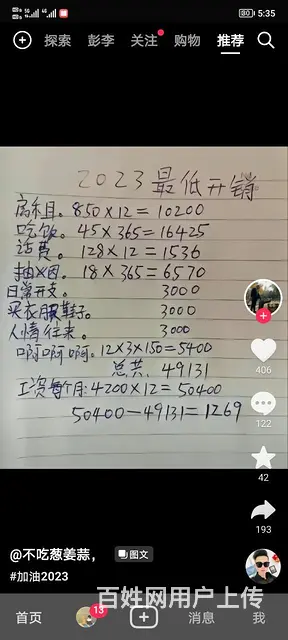 5:35
探索
彭李
关注
购物
推荐
2023最低开销。
房租。850×12=10200
吃饭。45×365=16425
话费。128×12=1536
抽X因。18×365=6570
日常开支。 3000
买衣服鞋子。 3000
人情往来。 3000
啊啊啊啊。12×3×150=5400
总共. 49131
工资每个月:4200×12=50400
50400-49131=1269
406
122
42
193
@不吃葱姜蒜,
图文
#加油2023
百姓网用户上传
首页
13
消息
我